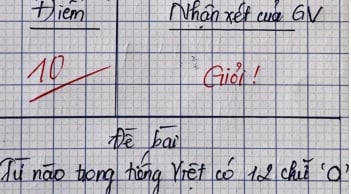 Điểm Nhận xét của GV
10 Giỏi !
Đề bài
Từ nào trong tiếng Việt có 12 chữ 'O'